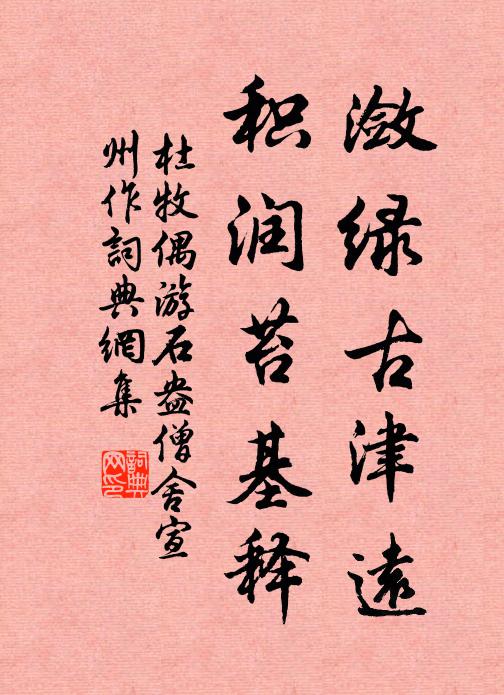 潋绿古津遠
积润苔基释
杜牧偶游石盎僧舍宣
州作詞典網集
詞典
网印